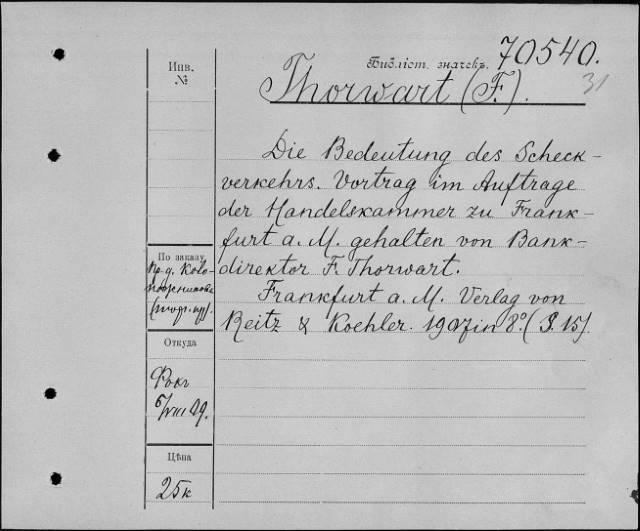 Библіот. значекъ. 70540.
31
Инв.
№
Thorwart (F.).
Die Bedeutung des Scheck-
verkehrs. Vortrag im Auftrage
der Handelskammer zu Frank-
furt a. M. gehalten von Bank-
direktor F. Thorwart.
Frankfurt a. M. Verlag von
Reitz & Koehler. 1907 in 8° (S. 15).
По заказу
Откуда
Цѣна
25к